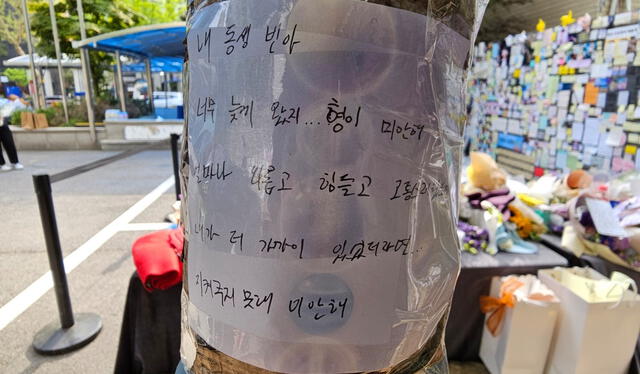 내 동생 빈아
너무 늦게 왔지... 형이 미안해
얼마나 외롭고 힘들고
내가 더 가까이 있었더라면..
지켜주지 못해 미안해